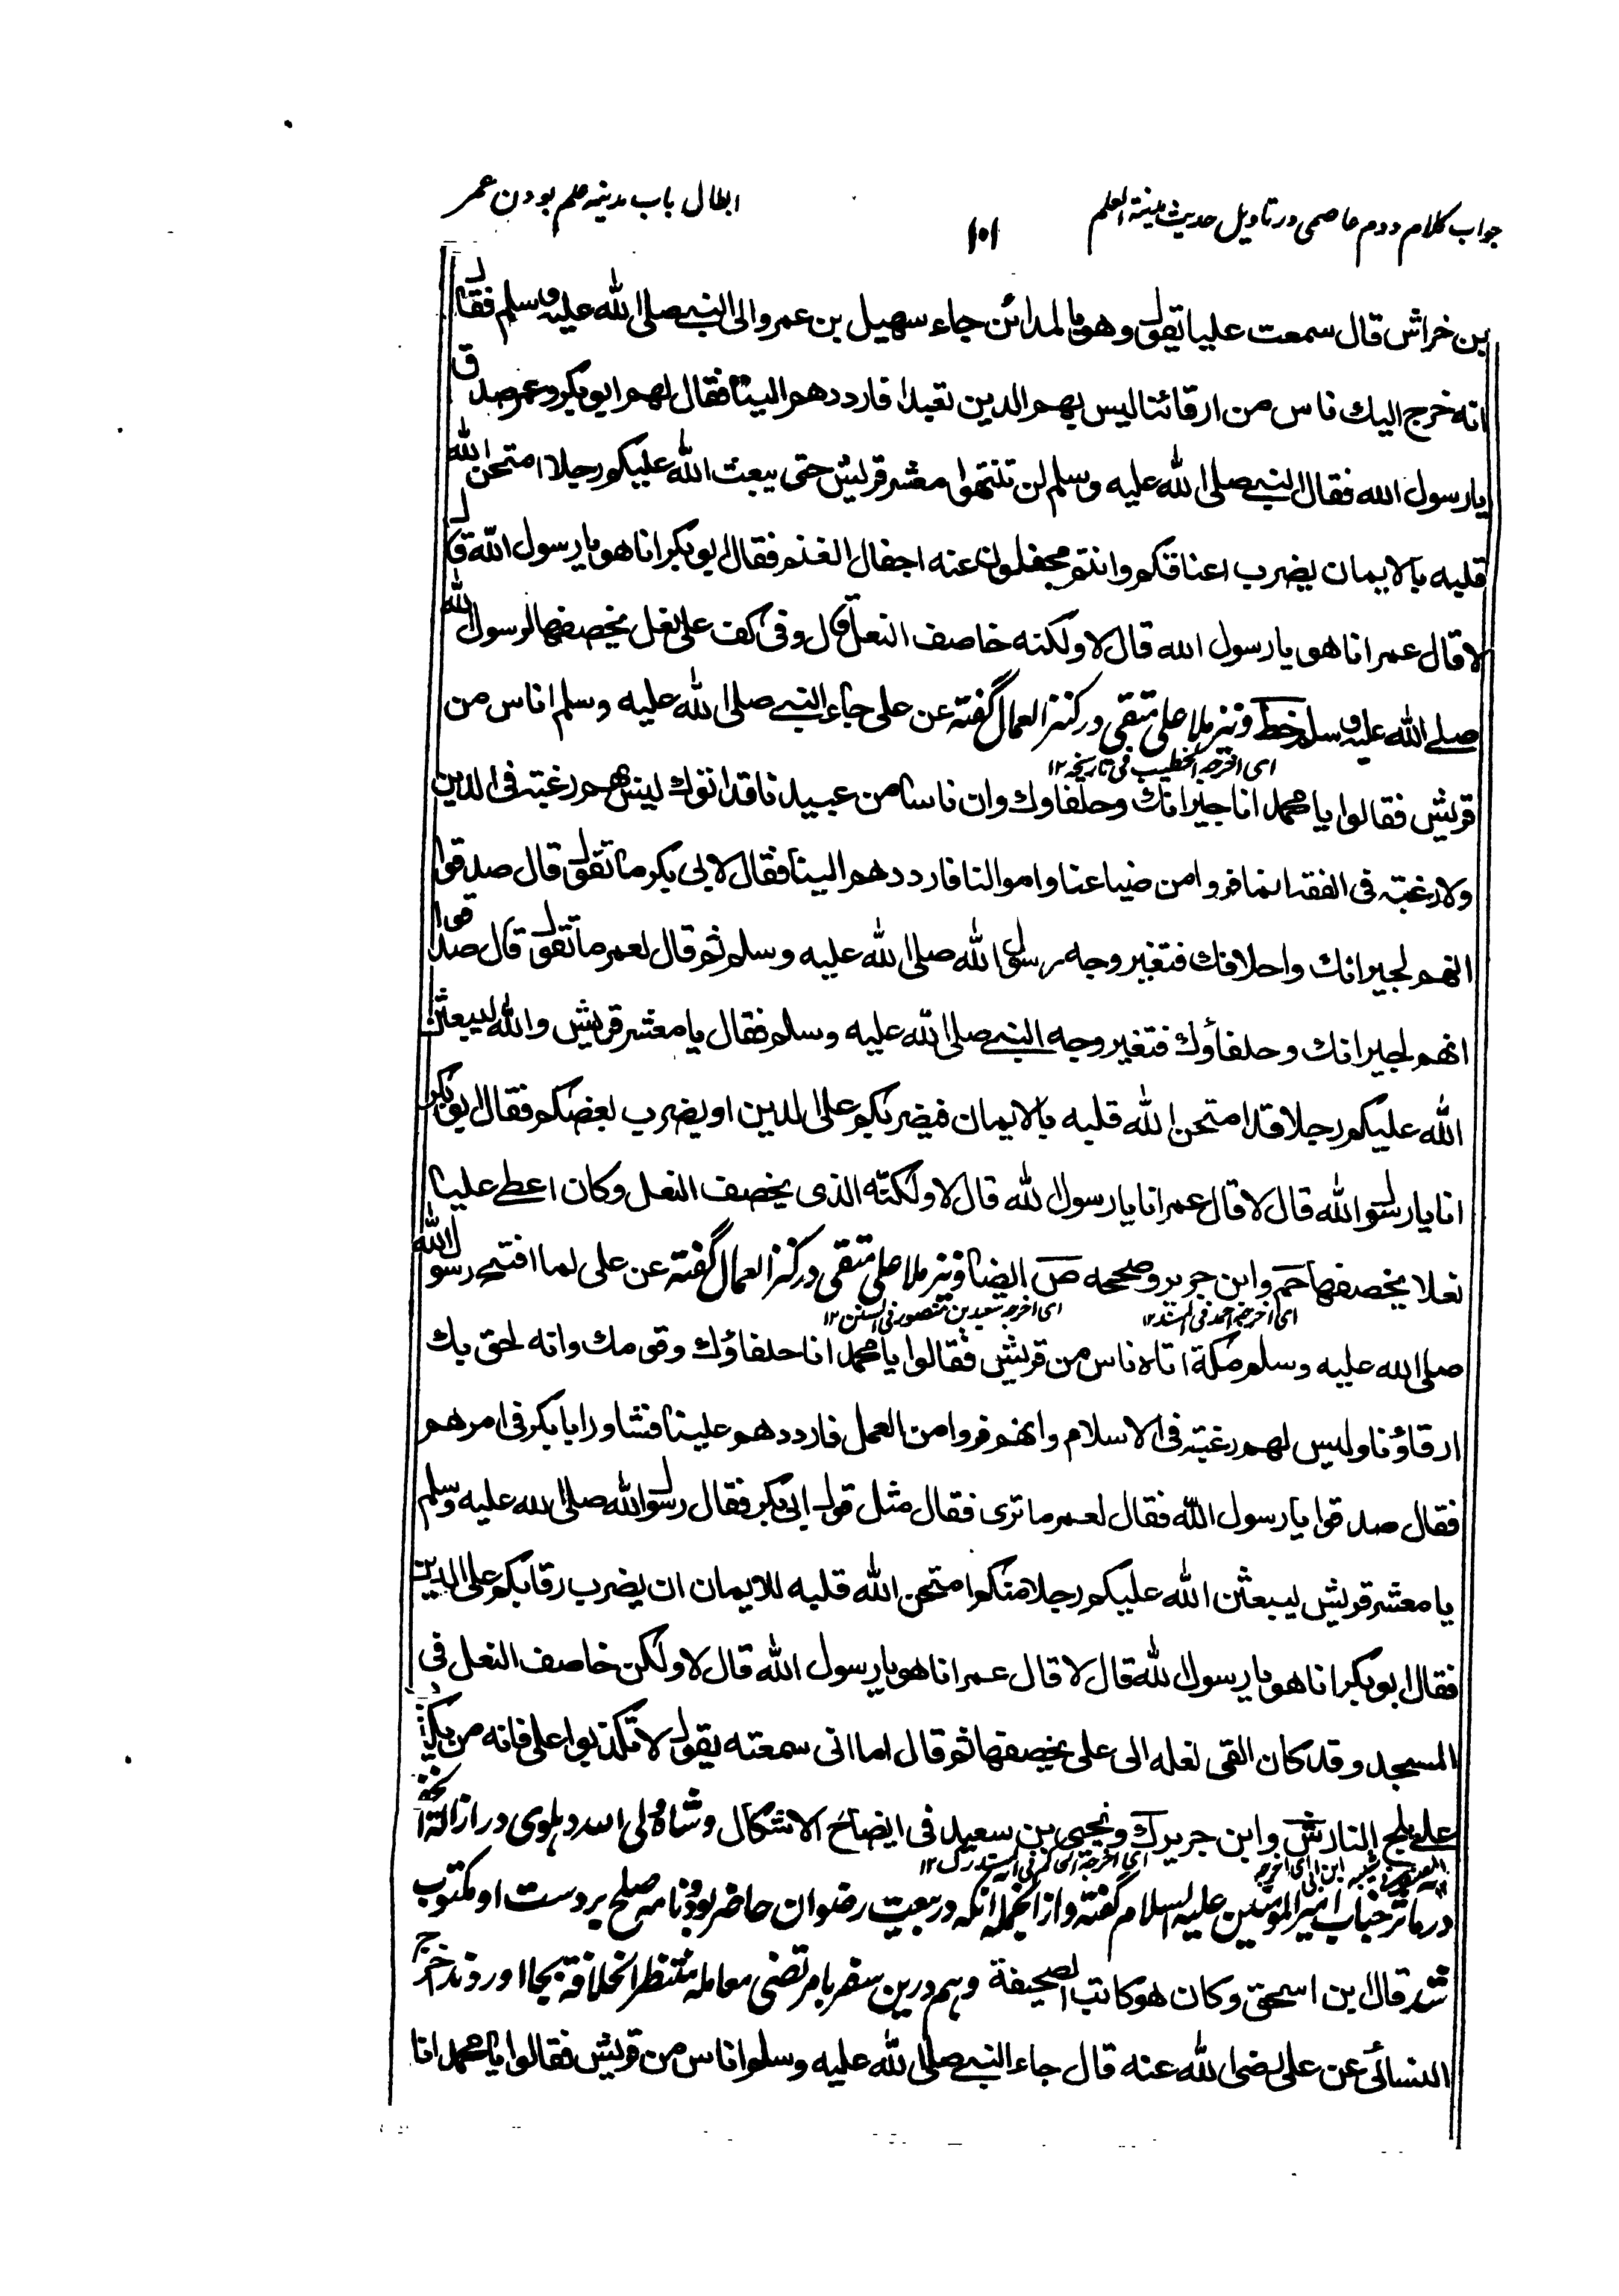 جواب کلام دوم عاصمی در تاویل حدیث مدینة العلم
۱۰۱
ابطال باب مدینه علم بودن عمر
بن خراش قال سمعت عليا تقول وهو بالمدائن جاء سهيل بن عمرو الى النبي صلى الله عليه وسلم فقال
انه خرج اليك ناس من ارقائنا ليس بهم الدين تعبدا فارددهم الينا فقال لهم ابو بكر وعمر صدق
يا رسول الله فقال النبي صلى الله عليه وسلم لن تنتهوا معشر قريش حتى يبعث الله عليكم رجلا امتحن الله
قلبه بالايمان يضرب اعناقكم وانتم مجفلون عنه اجفال الغنم فقال ابو بكر انا هو يا رسول الله قال
لا قال عمر انا هو يا رسول الله قال لا ولكنه خاصف النعل قال وفى كف على نعل يخصفها لرسول الله
صلى الله عليه وسلم خط ونیز ملا علی متقی در کنز العمال گفته عن على جاء النبي صلى الله عليه وسلم اناس من
اى اخرجه الخطيب فى تاريخه ۱۲
قريش فقالوا يا محمد انا جيرانك وحلفاؤك وان ناسا من عبيدنا قد اتوك ليس لهم رغبة فى الدين
ولا رغبة فى الفقه انما فروا من ضياعنا واموالنا فارددهم الينا فقال لابى بكر ما تقول قال صدقوا
انهم لجيرانك واحلافك فتغير وجه رسول الله صلى الله عليه وسلم ثم قال لعمر ما تقول قال صدقوا
انهم لجيرانك وحلفاؤك فتغير وجه النبي صلى الله عليه وسلم فقال يا معشر قريش والله ليبعثن
الله عليكم رجلا قد امتحن الله قلبه بالايمان فيضربكم على الدين او يضرب بعضكم فقال ابو بكر
انا يا رسول الله قال لا قال عمر انا يا رسول الله قال لا ولكنّه الذى يخصف النعل وكان اعطى عليا
نعلا يخصفها حم وابن جرير وصححه ص ايضا ونیز ملا علی متقی در کنز العمال گفته عن على لما افتتح رسول الله
اى اخرجه احمد فى المسند ۱۲
اى اخرجه سعيد بن منصور فى السنن ۱۲
صلى الله عليه وسلم مكة اتاه ناس من قريش فقالوا يا محمد انا حلفاؤك وقومك وانه لحق بك
ارقاؤنا وليس لهم رغبة فى الاسلام وانهم فروا من العمل فارددهم علينا فشاور ابا بكر فى امرهم
فقال صدقوا يا رسول الله فقال لعمر ما ترى فقال مثل قول ابى بكر فقال رسول الله صلى الله عليه وسلم
يا معشر قريش ليبعثن الله عليكم رجلا منكم امتحن الله قلبه للايمان ان يضرب رقابكم على الدين
فقال ابو بكر انا هو يا رسول الله قال لا قال عمر انا هو يا رسول الله قال لا ولكن خاصف النعل فى
المسجد وقد كان القى نعله الى على يخصفها ثم قال اما انى سمعته يقول لا تكذبوا على فانه من يكذب
على يلج النار ش وابن جرير ك ويحيى بن سعيد فى ايضاح الاشكال وشاه ولی الله دهلوی در ازالة الخفا
اى اخرجه ابن ابى شيبه
اى اخرجه الحاكم فى المستدرك ۱۲
در مآثر جناب امیر المؤمنین علیه السلام گفته واز انجمله آنکه در بیعت رضوان حاضر بود ونامه صلح بر دست او مکتوب
شد قال ابن اسحق وكان هو كاتب الصحيفة وهم درین سفر با مرتضی معامله منتظر الخلافة بجا آوردند اخرج
النسائى عن على رضى الله عنه قال جاء النبي صلى الله عليه وسلم اناس من قريش فقالوا يا محمد انا